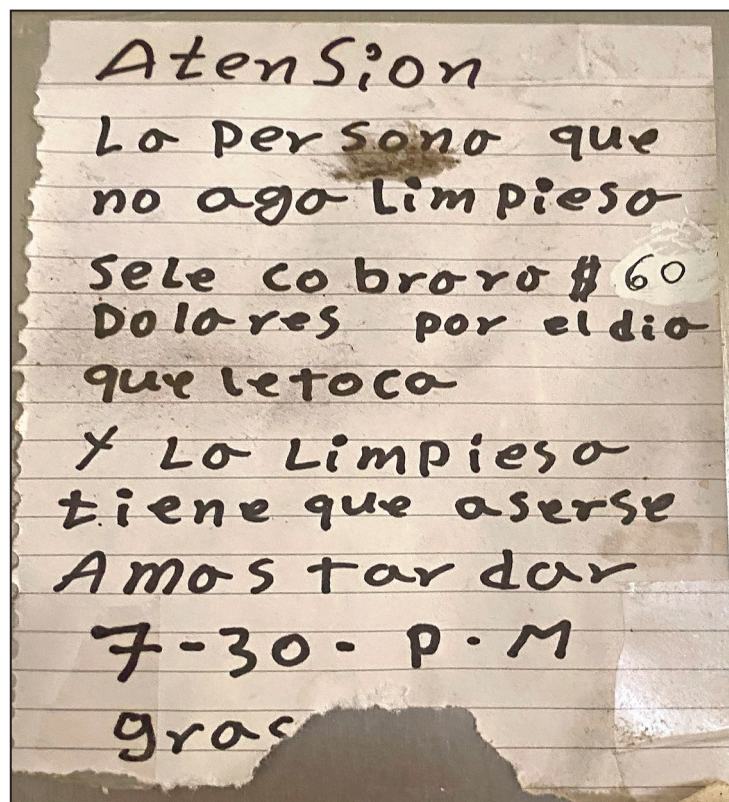 AtenSion
La persona que
no aga Limpiesa
sele cobrara $60
Dolares por el dia
que le toca
Y La Limpiesa
tiene que aserse
A mas tardar
7-30- P.M
grac